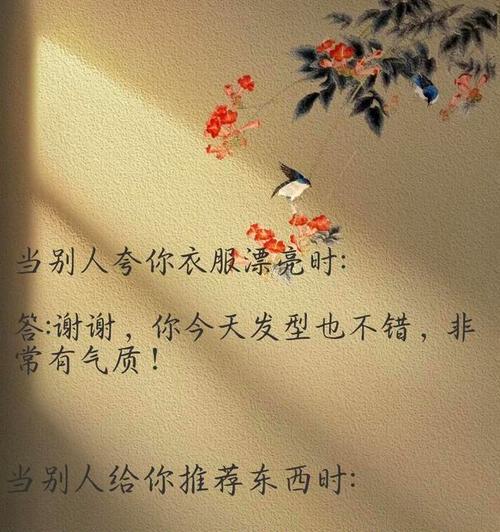 当别人夸你衣服漂亮时:
答:谢谢，你今天发型也不错，非
常有气质！
当别人给你推荐东西时: